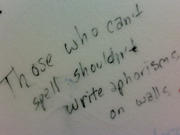 Those who can't
spell shouldn't
write aphorisms
on walls